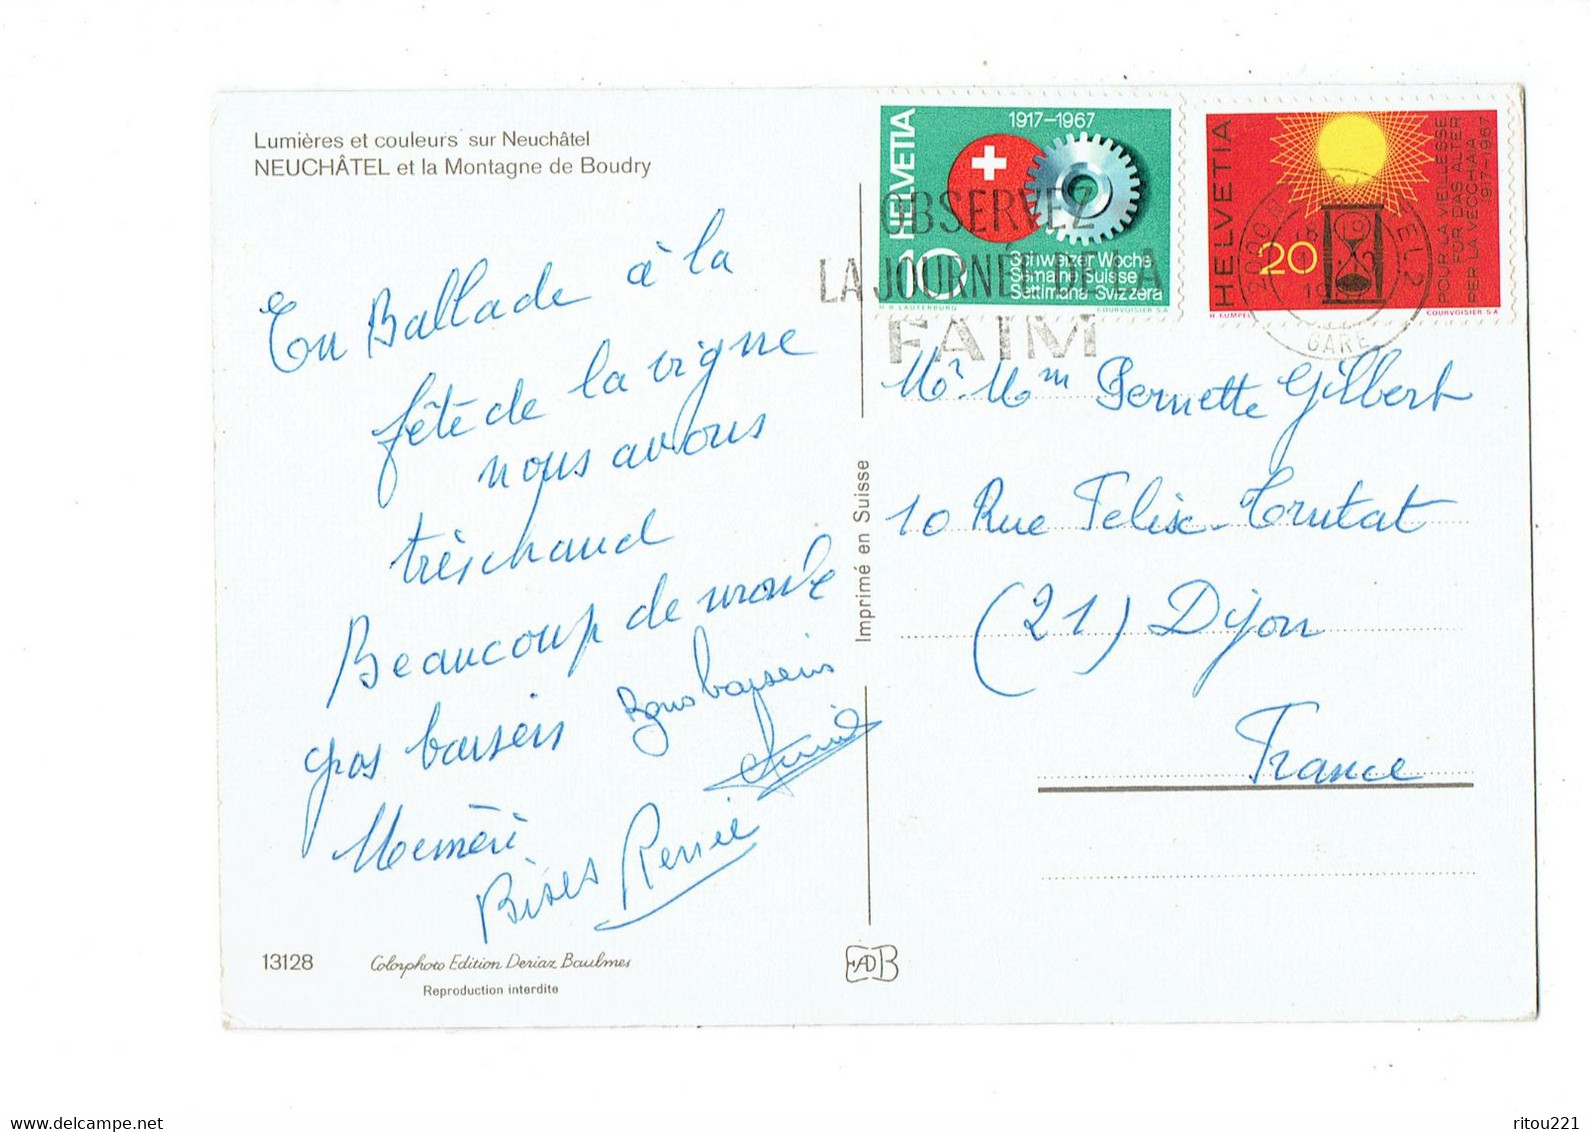 Lumières et couleurs sur Neuchâtel
NEUCHÂTEL et la Montagne de Boudry
En Ballade à la
fête de la vigne
nous avons
très chaud
Beaucoup de monde
gros baisers Bons baisers
Mémère
Bises Renée
13128 Colorphoto Edition Deriaz Baulmes
Reproduction interdite
Imprimé en Suisse
EDB
HELVETIA
1917-1967
10
Schweizer Woche
Semaine Suisse
Settimana Svizzera
H. R. LAUTERBURG COURVOISIER S A
HELVETIA
20
POUR LA VIEILLESSE
FÜR DAS ALTER
PER LA VECCHIAIA
1917-1967
H. KÜMPEL COURVOISIER S A
OBSERVEZ
LA JOURNÉE DE LA
FAIM
2000 NEUCHÂTEL 2
GARE
Mr. Mm Pernette Gilbert
10 Rue Felix-Trutat
(21) Dijon
France
ritou221